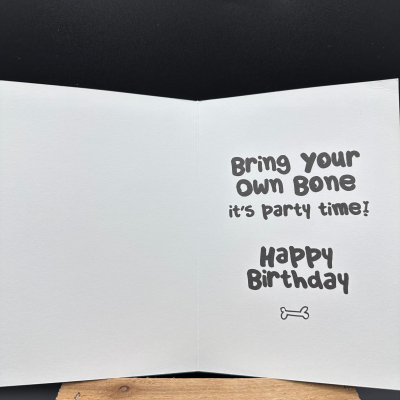 Bring Your
Own Bone
it's party time!
Happy
Birthday